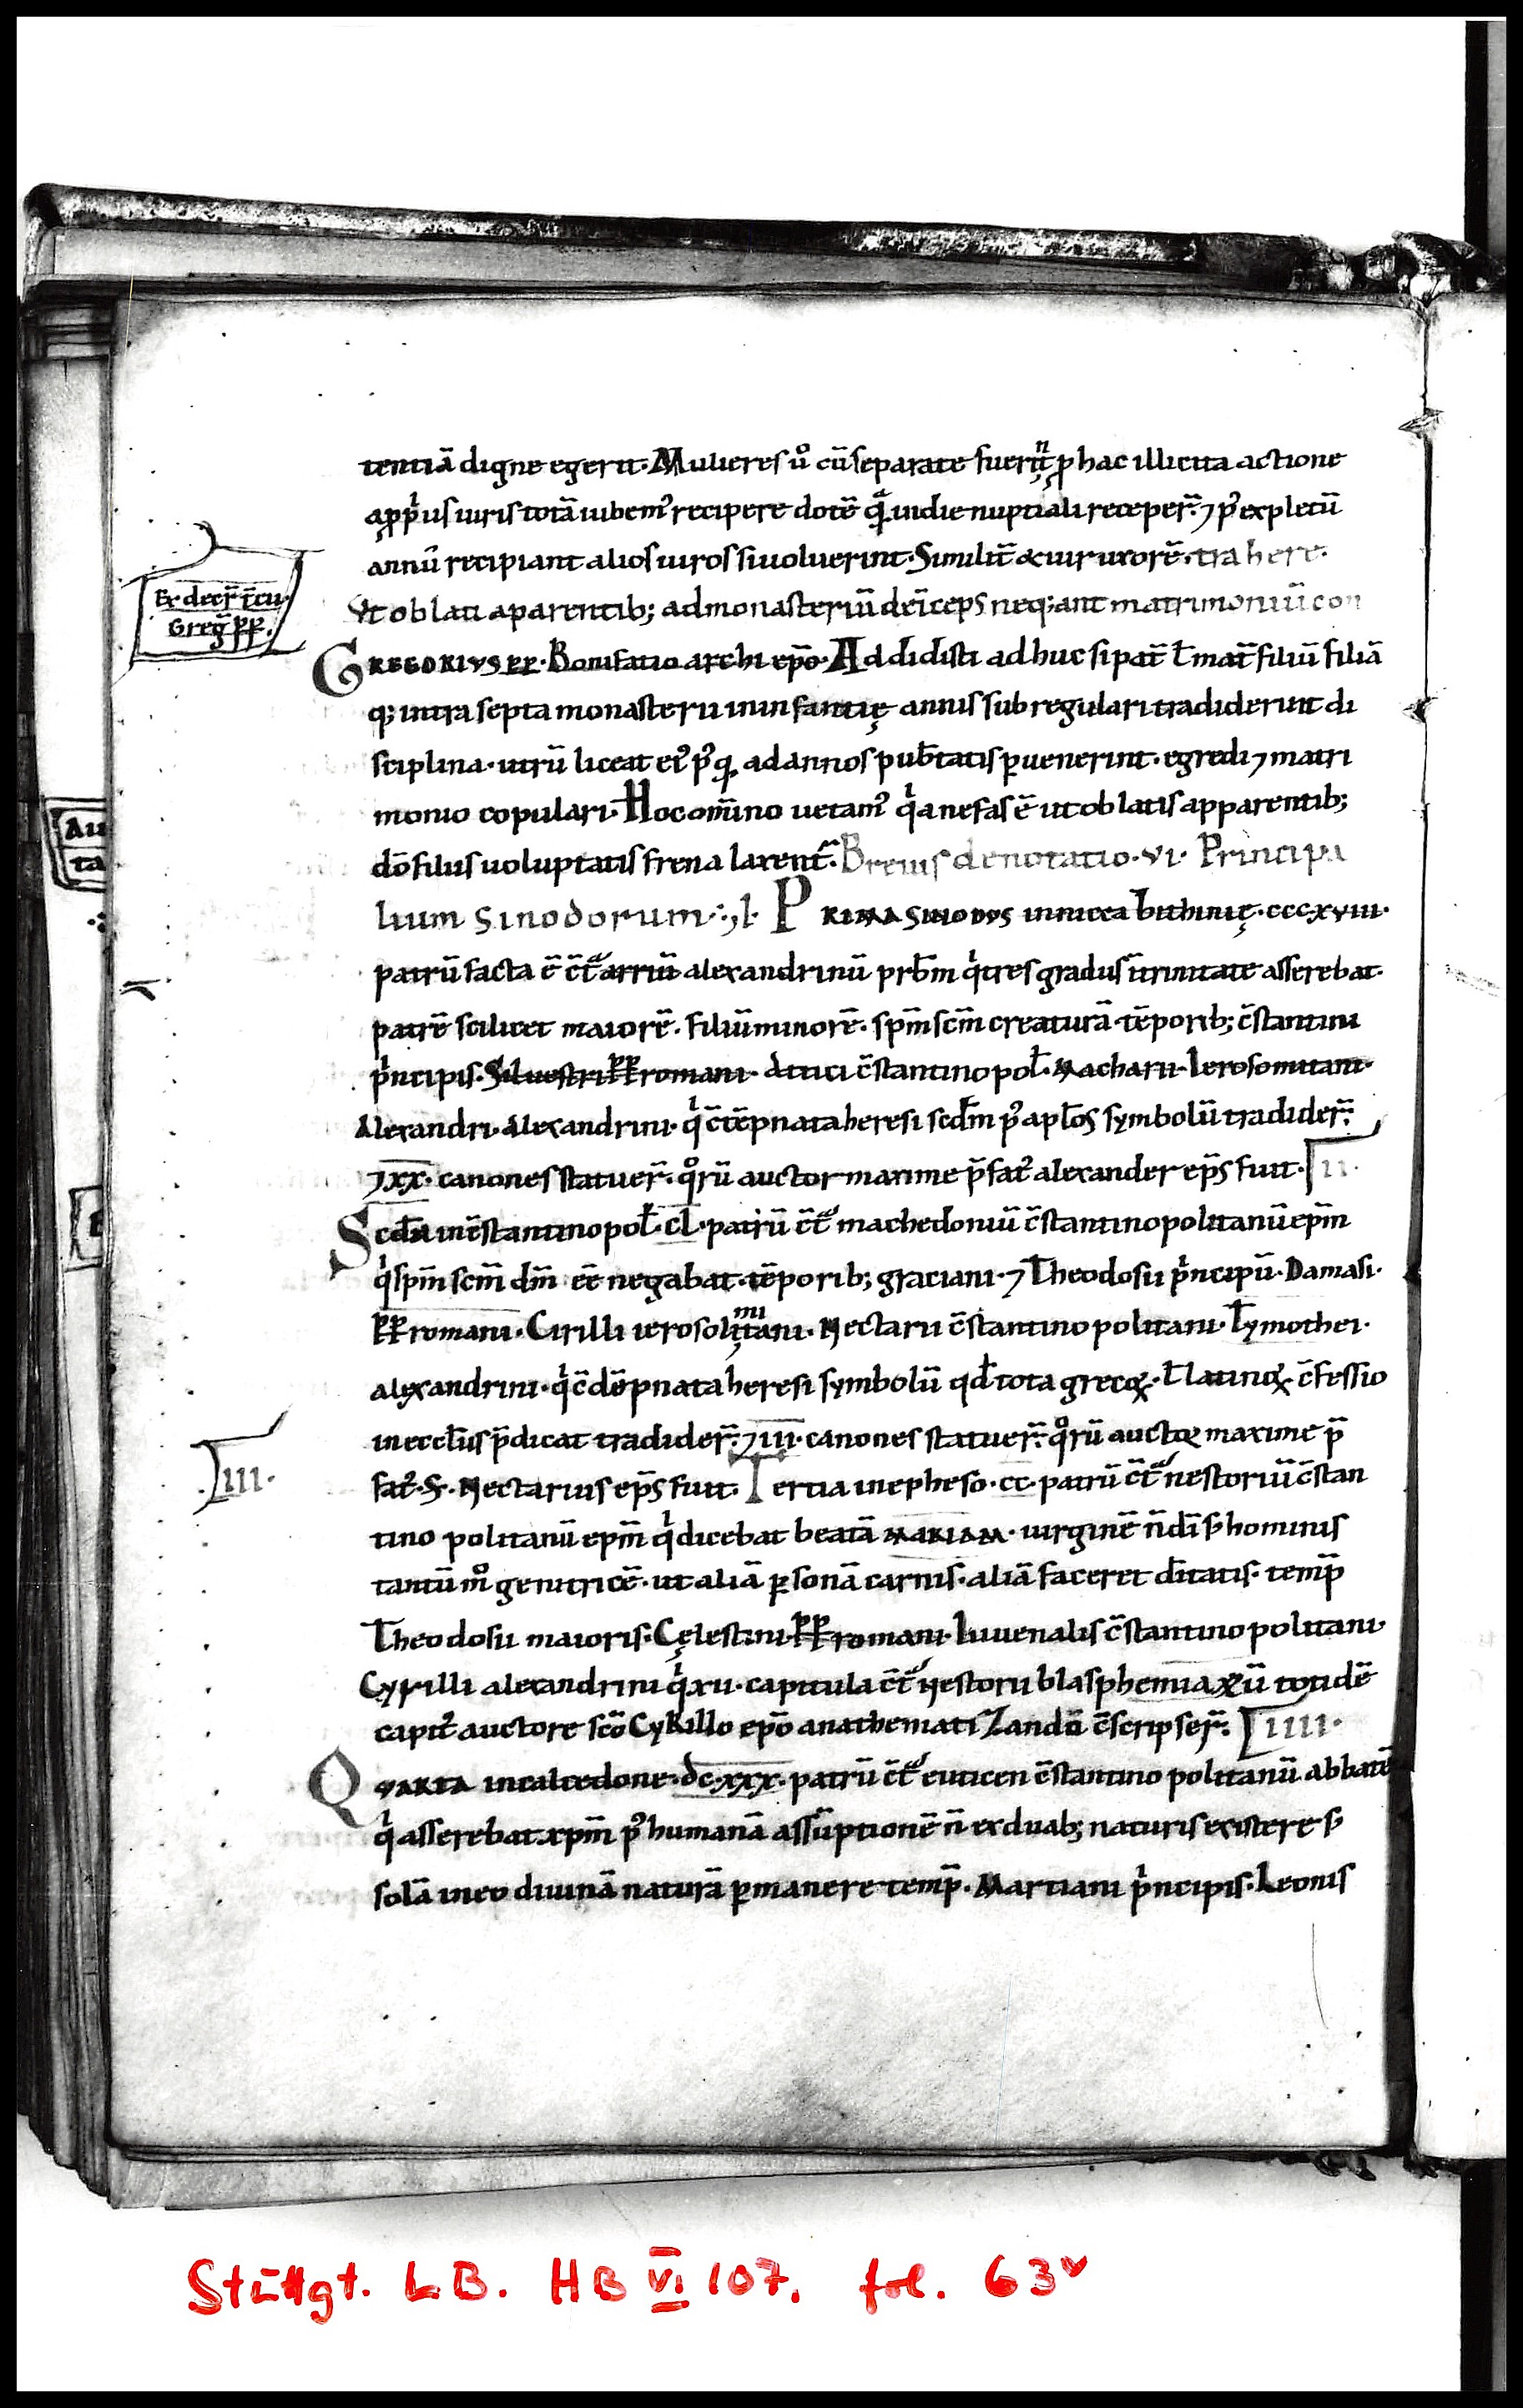 tentiā digne egerit. Mulieres ů cū separate fuerint̄ p hac illicita actione
app̍us iuris totā iubem᾿ recipere dotē quā in die nuptiali receper̄. ⁊ p᾿ expletū
annū recipiant alios uiros si uoluerint. Similit̄ & uir uxorē. trahere.
Ex decr̄ īcu.
Greḡ PP.
Vt oblati a parentib; ad monasteriū deīceps neq;ant matrimoniū con
GREGORIVS PP. Bonifatio archi ep̄o. Addidisti adhuc si pat̄ ł mat̄ filiū filiā
q; intra septa monasterii in infantię annis sub regulari tradiderint di
sciplina. utrū liceat ei᾿ p᾿q ad annos pub̄tatis puenerint. egredi ⁊ matri
monio copulari. Hoc om̄ino uetam᾿ q̍a nefas ē ut oblatis a parentib;
dō filiis uoluptatis frena laxent̄. Breuis denotatio. VI. Principa
lium sinodorum. ł. PRIMA SINODVS in nicea bithinię. cccxviii.
patrū facta ē c̄t̄ arriū alexandrinū prb̄m q̍ tres gradus ī trinitate asserebat.
patrē scilicet maiorē. filiū minorē. sp̄m sc̄m creaturā. tēporib; c̄stantini
p̍ncipis. Siluestri PP romani. Attici c̄stantinopoł. Macharii Ierosomitani.
Alexandri. Alexandrini. q̍ c̄tēpnata heresi scd̄m p᾿ apłos symbolū tradider̄.
⁊ xx. canones statuer̄. q̊rū auctor maxime p̄fat᾿ alexander ep̄s fuit. II.
Scd̄a in c̄stantinopoł. cl. patrū c̄t̄ machedoniū c̄stantinopolitanū ep̄m
q̍ sp̄m sc̄m dm̄ ēe negabat. tēporib; graciani. ⁊ Theodosii p̍ncipū. Damasi.
PP romani. Cirilli ierosolimitani. Nectarii c̄stantinopolitani. Tymothei.
alexandrini. q̍ c̄dēpnata heresi symbolū qd̄ tota grecoꝝ. ł latinoꝝ. c̄fessio
in eccłiis p̄dicat tradider̄. ⁊ iii. canones statuer̄. q̊rū auctor maxime p̄
III.
fat᾿. S. Nectarius ep̄s fuit. Tertia in epheso. cc. patrū c̄t̄ nestoriū c̄stan
tino politanū ep̄m q̍ dicebat beatā MARIAM. uirginē n̄ dī s; hominis
tantūm̊ genitricē. ut aliā psonā carnis. aliā faceret d̄itatis. temp̄
Theodosii maioris. Cęlestini. PP romani. Iuuenalis c̄stantinopolitani.
Cyrilli alexandrini q̍ xii. capitula c̄t̄ Nestorii blasphemia xii totidē
capit᾿ auctore scō Cyrillo ep̄o anathematizandū c̄scripser̄. IIII.
QVARTA in calcedone. dc.xxx. patrū c̄t̄ euticen c̄stantino politanū abbatē
q̍ asserebat xp̄m p᾿ humanā assūptionē n̄ ex duab; naturis existere s;
solā in eo diuinā naturā pmanere temp̄. Martiani p̍ncipis. Leonis
Stuttgt. LB. HB VI 107. fol. 63v